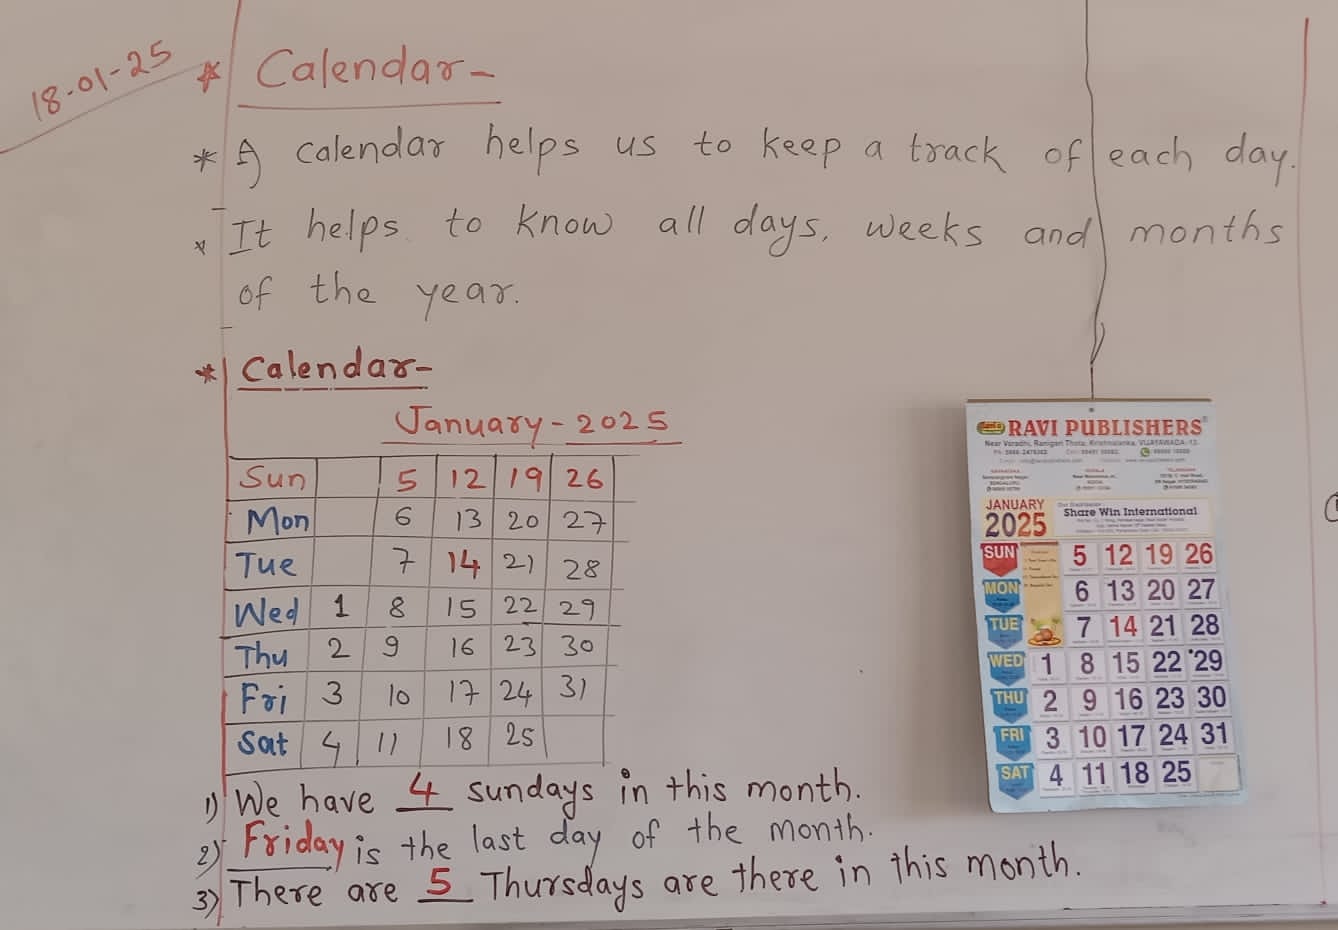 18-01-25
* Calendar-
* A calendar helps us to keep a track of each day.
* It helps to know all days, weeks and months
of the year.
* Calendar-
January-2025
Sun 5 12 19 26
Mon 6 13 20 27
Tue 7 14 21 28
Wed 1 8 15 22 29
Thu 2 9 16 23 30
Fri 3 10 17 24 31
Sat 4 11 18 25
1) We have 4 sundays in this month.
2) Friday is the last day of the month.
3) There are 5 Thursdays are there in this month.
RAVI PUBLISHERS
Near Varadhi, Ranigari Thota, Krishnalanka, VIJAYAWADA-13.
JANUARY
2025
Share Win International
SUN 5 12 19 26
MON 6 13 20 27
TUE 7 14 21 28
WED 1 8 15 22 29
THU 2 9 16 23 30
FRI 3 10 17 24 31
SAT 4 11 18 25